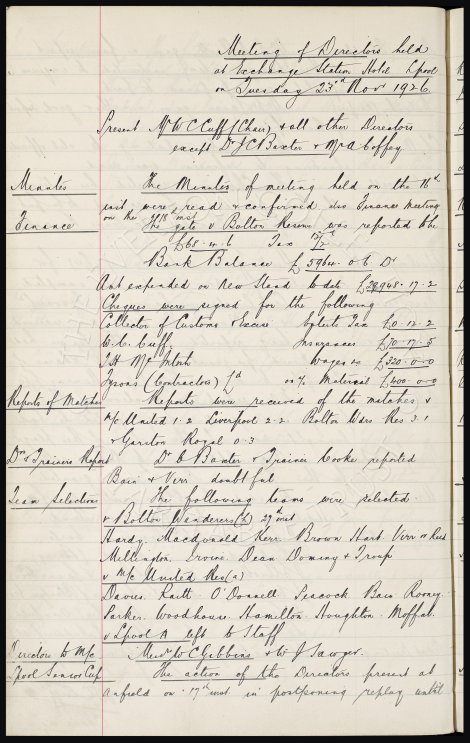 Meeting of Directors held
at Exchange Station Hotel Lpool
on Tuesday 23rd Nov 1926.
Present Mr W C Cuff (Chair) & all other Directors
except Dr J C Baxter & Mr A Coffey.
Minutes
The Minutes of meeting held on the 16th
inst were read & confirmed also Finance Meeting
on the 18th inst
Finance
The gate v Bolton Res was reported to be
£68.4.6 Tax 12/2d
Bank Balance £3964.0.6 Dr
Amt expended on New Stand to date £28948.17.2
Cheques were signed for the following
Collector of Customs & Excise Tax £0.12.2
W. C. Cuff Insurances £70.17.5
T.H. McIntosh Wages &c £320.0.0
Tysons (Contractors) Ld on % Material £400.0.0
Reports of Matches
Reports were received of the matches v
M/c United 1.2 Liverpool 2.2 Bolton Wdrs Res 3.1
& Garston Royal 0.3
Drs & Trainers Report
Dr Baxter & Trainer Cooke reported
Bain & Virr doubtful
Team Selection
The following teams were selected.
v Bolton Wanderers (h) 27th inst
Hardy. Macdonald Kerr. Brown Hart Virr or Reid
Millington. Irvine. Dean Dominy & Troup
v M/c United Res (a)
Davies. Raitt. O'Donnell. Peacock Bain Rooney.
Parker. Woodhouse. Hamilton. Houghton. Moffat.
v Lpool A left to Staff
Directors to M/c
Messrs W C Gibbins & W J Sawyer.
Lpool Senior Cup
The action of the Directors present at
Anfield on 17th inst in postponing replay until